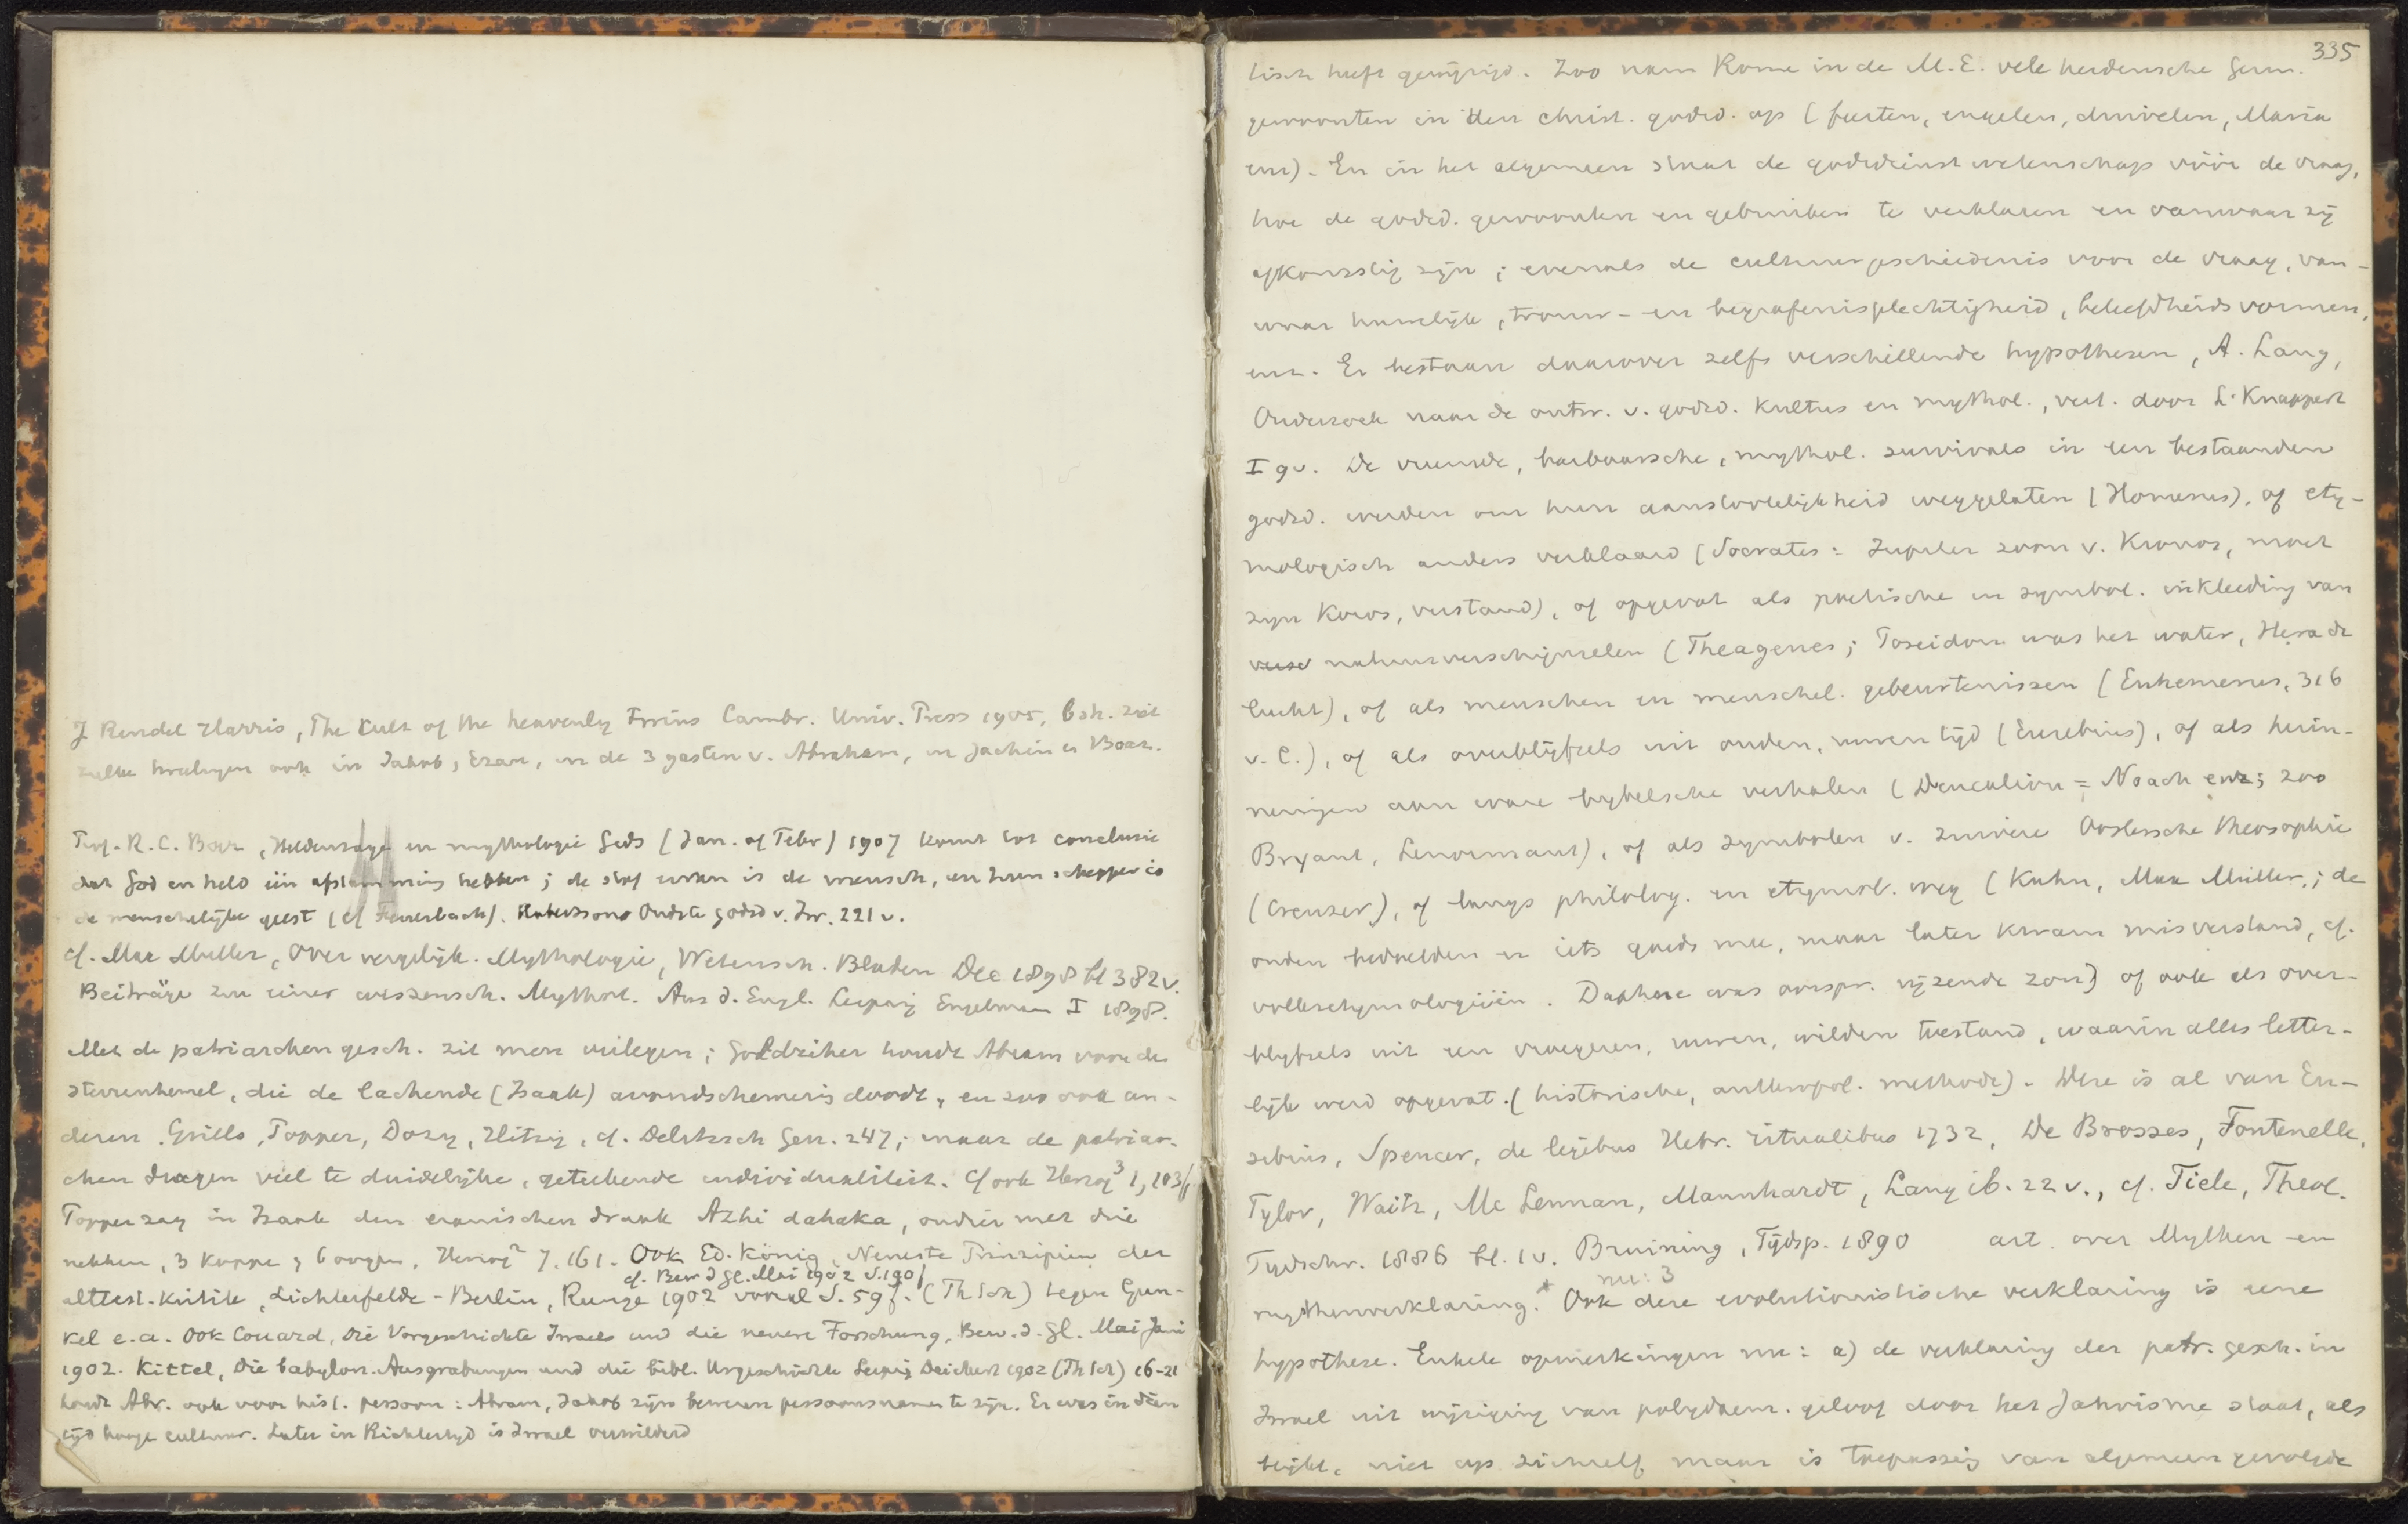 J Rendel Harris, The Cult of the heavenly Twins Cambr. Univ. Press 1905, besch. ziet
zulke tweelingen ook in Jakob, Ezau, in de 3 gasten v. Abraham, in Jachin en Boaz.
Prof. R. C. Boer, Heldensage en mythologie Gids (Jan. of Febr) 1907 komt tot conclusie
dat God en held één afstamming hebben; de stof ervan is de mensch, en hun schepper is
de menschelijke geest (cf Feuerbach). Robertsons Oudste godsd v. Isr. 221 v.
cf. Max Muller, Over vergelijk. Mythologie, Wetensch. Bladen Dec 1898 bl 382 v.
Beiträge zu einer wissensch. Mythol. Aus d. Engl. Leipzig Engelman I 1898.
Met de patriarchengesch. zit men verlegen; Goldziher houdt Abram voor den
sterrenhemel, die de lachende (Izaak) avondschemering doodt, en zoo ook an-
deren. Grill, Popper, Dozy, Hitzig, cf. Delitzsch Gen. 247; maar de patriar-
chen dragen veel te duidelijke, geteekende individualiteit. Cf ook Herzog³ 1, 103
Popper zag in Izaak den eranischen draak Azhi dahaka, ondier met drie
nekken, 3 koppen, 6 oogen, Herzog² 7, 161. Ook Ed. König, Neueste Prinzipien der
cf. Bew d Gl. Mai 1902 S. 190
alttest. Kritik, Lichterfelde-Berlin, Runge 1902 vooral S. 59 f. (Th Sch) tegen Gun-
kel e.a. Ook Couard, Die Vorgeschichte Israels und die neuere Forschung, Bew. d. Gl. Mai Juni
1902. Kittel, Die babylon. Ausgrabungen und die bibl. Urgeschichte Leipzig Deichert 1902 (Th Sch) 16-21
houdt Abr. ook voor hist. persoon: Abram, Jakob zijn bewezen persoonsnamen te zijn. Er was in dien
tijd hooge cultuur. Later in Richtertijd is Israel verwilderd
335
tisch heeft gewijzigd. Zoo nam Rome in de M.E. vele heidensche Germ.
gewoonten in den christ. godsd. op (feesten, engelen, duivelen, Maria
enz). En in het algemeen staat de godsdienstwetenschap vóór de vraag,
hoe de godsd. gewoonten en gebruiken te verklaren en vanwaar zij
afkomstig zijn; evenals de cultuurgeschiedenis voor de vraag, van-
waar huwelijk, trouw- en begrafenisplechtigheid, beleefdheidsvormen,
enz. Er bestaan daarover zelfs verschillende hypothesen, A. Lang,
Onderzoek naar de ontw. v. godsd. Kultus en mythol., vert. door L. Knappert
I 9 v. De vreemde, barbaarsche, mythol. survivals in een bestaanden
godsd. werden om hun aanstootelijkheid weggelaten (Homerus), of ety-
mologisch anders verklaard (Socrates: Jupiter zoon v. Kronos, moet
zijn Koros, verstand), of opgevat als poëtische en symbol. inkleeding van
natuurverschijnselen (Theagenes; Poseidon was het water, Hera de
lucht), of als menschen en menschel. gebeurtenissen (Euhemerus, 316
v. C.), of als overblijfsels uit ouden, ruwen tijd (Eusebius), of als herin-
neringen aan ware bijbelsche verhalen (Deucalion = Noach enz; zoo
Bryant, Lenormant), of als symbolen v. zuivere Oostersche theosophie
(Creuzer), of langs philolog. en etymol. weg (Kuhn, Max Müller,; de
ouden bedoelden er iets goeds mee, maar later kwam misverstand, cf.
volksetymologieën. Daphne was oorspr. rijzende zon) of ook als over-
blijfsels uit een vroegeren, ruwen, wilden toestand, waarin alles letter-
lijk werd opgevat. (historische, anthropol. methode). Deze is al van Eu-
sebius, Spencer, de legibus Hebr. ritualibus 1732, De Brosses, Fontenelle,
Tylor, Waitz, Mc Lennan, Mannhardt, Lang ib. 22 v., cf. Tiele, Theol.
Tijdschr. 1886 bl. 1 v. Bruining, Tijdsp. 1890 art. over Mythen en
mythenverklaring.* Ook deze evolutionistische verklaring is eene
hypothese. Enkele opmerkingen nu: a) de verklaring der patr. gesch. in
Israel uit wijziging van polydaem. geloof door het Jahvisme staat, als
blijkt, niet op zichzelf maar is toepassing van algemeen gevolgde